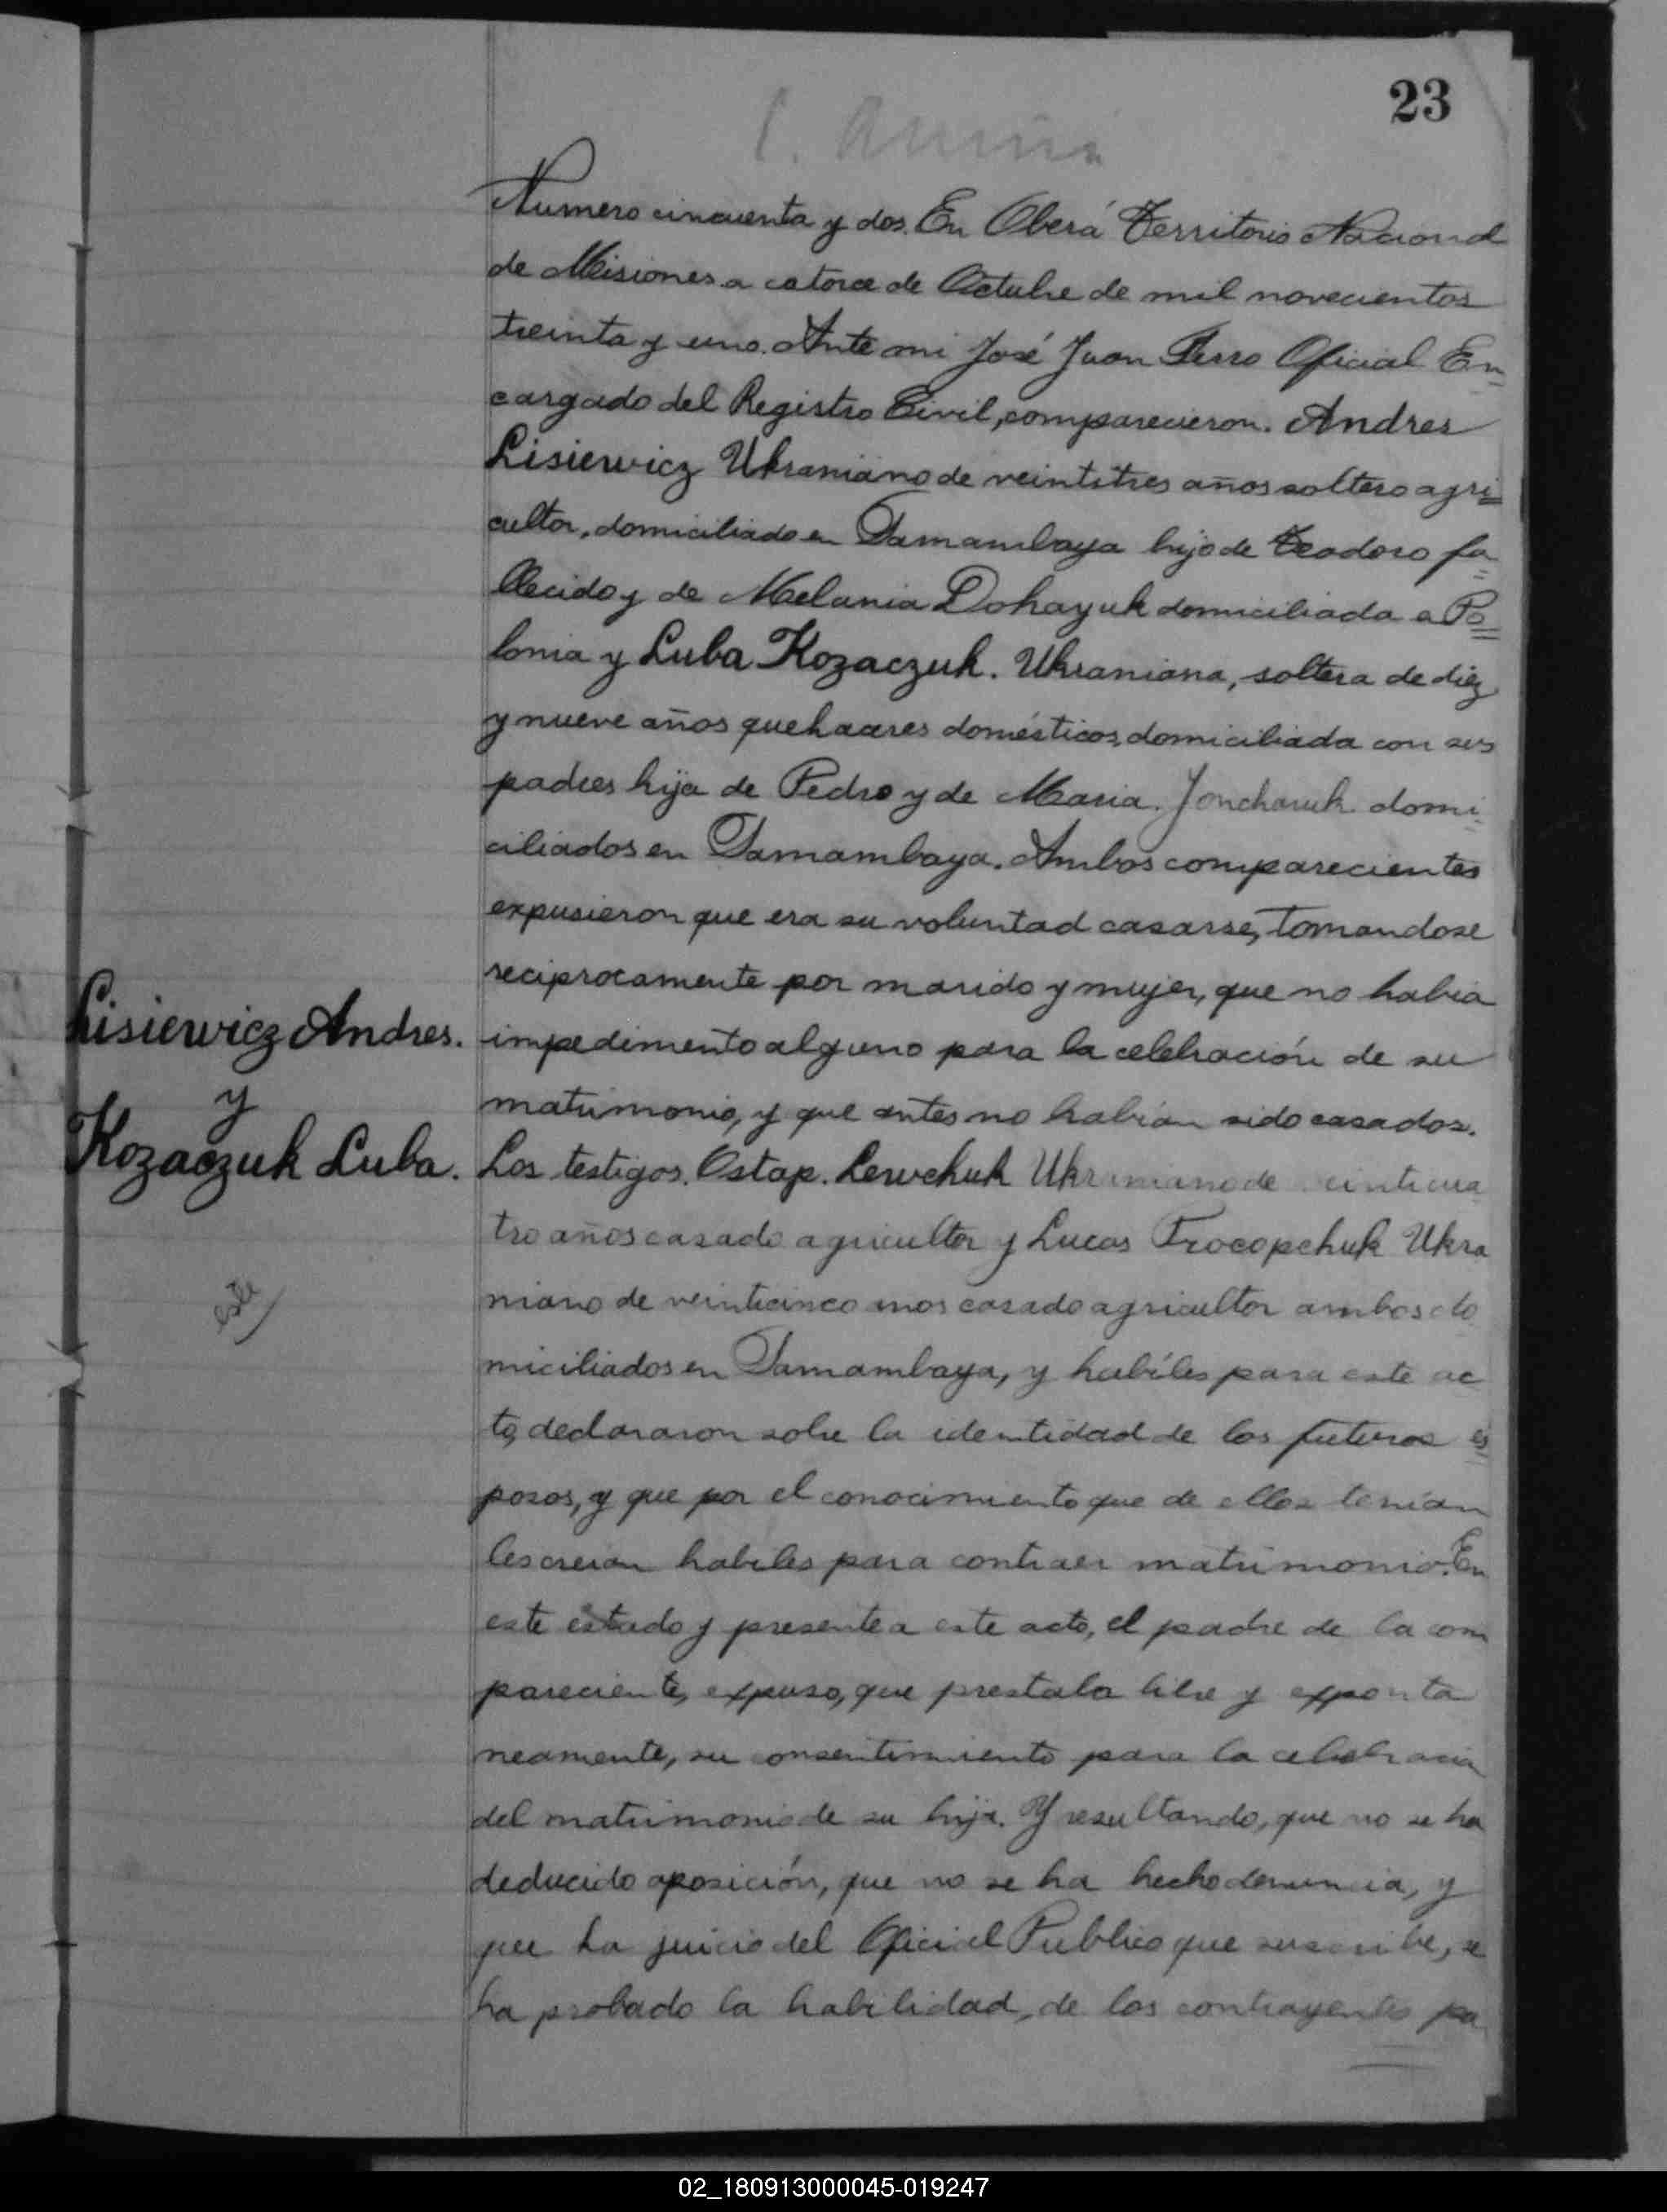 23
Numero cincuenta y dos. En Oberá Territorio Nacional
de Misiones a catorce de Octubre de mil novecientos
treinta y uno. Ante mi José Juan Ferro Oficial En
cargado del Registro Civil, comparecieron. Andres
Lisiewicz Ukraniano de veintitres años soltero agri
cultor, domiciliado en Tamambaya hijo de Teodoro fa
llecido y de Melania Dohayuk domiciliada a Po
lonia y Luba Kozaczuk. Ukraniana, soltera de diez
y nueve años quehaceres domésticos, domiciliada con sus
padres hija de Pedro y de Maria. Joncharuk domi
ciliados en Tamambaya. Ambos comparecientes
expusieron que era su voluntad casarse, tomandose
reciprocamente por marido y mujer, que no habia
impedimento alguno para la celebración de su
matrimonio, y que antes no habían sido casados.
Los testigos. Ostap. Lewchuk Ukraniano de veinticua
tro años casado agricultor y Lucas Trocopchuk Ukra
niano de veinticinco anos casado agricultor ambos do
miciliados en Tamambaya, y habíles para este ac
to, declararon sobre la identidad de los futuros es
posos, y que por el conocimiento que de ellos tenían
les creian habiles para contraer matrimonio. En
este estado y presente a este acto, el padre de la com
pareciente, expuso, que prestaba libre y exponta
neamente, su consentimiento para la celebracion
del matrimonio de su hija. Y resultando, que no se ha
deducido oposición, que no se ha hecho denuncia, y
que ha juicio del Oficial Publico que suscribe, se
ha probado la habilidad, de los contrayentes pa
Lisiewicz Andres.
y
Kozaczuk Luba.
este
02_180913000045-019247